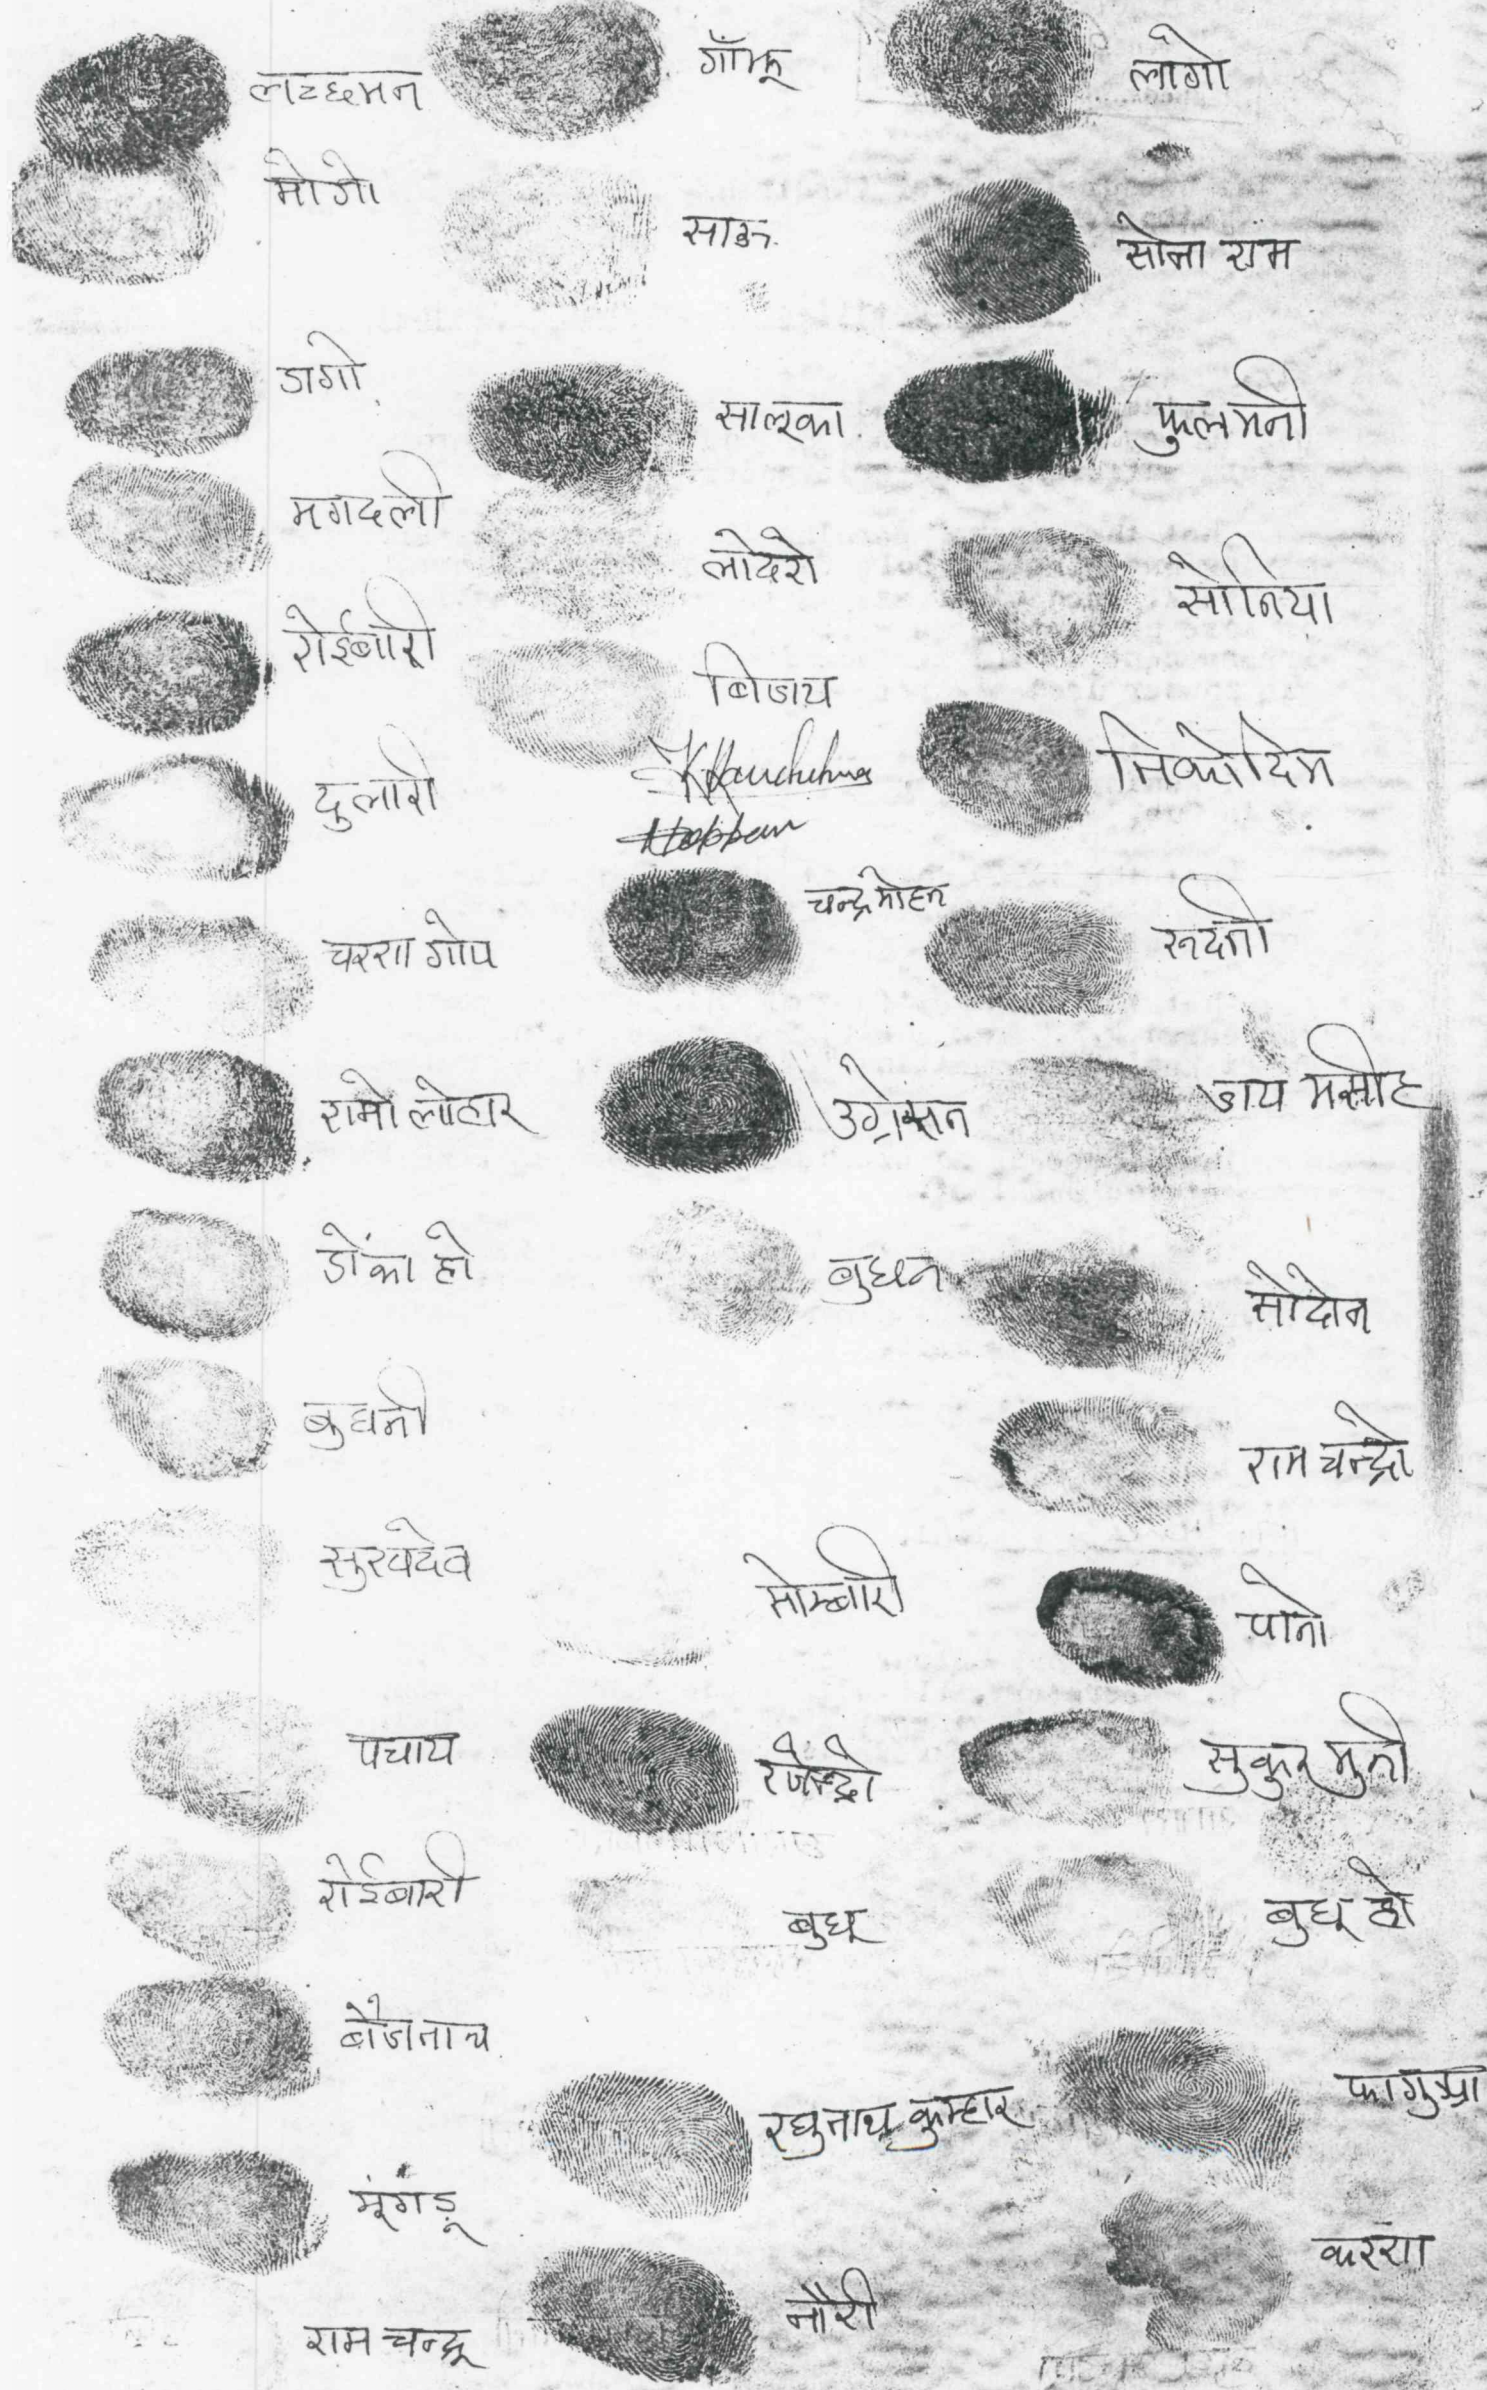 लच्छमन
मोगो
जागो
मगदली
रोईबारी
दुलारी
चरसा गोप
रामो लोहार
डोंका हो
बुधनी
सुखदेव
पचाय
रोईबारी
बैजनाथ
मंगडू
राम चन्द्र
गाँझू
साऊ
सालूका
लोदरो
बिजय
चन्द्रमोहन
उग्रेसन
बुधन
सोम्बारी
रजेन्द्रो
बुधू
रघुनाथ कुम्हार
नौरी
लागो
सोना राम
फुलमनी
सोनिया
निकोदिम
रूदनी
जय मसीह
सोदेन
राम चन्द्रो
पोनो
सुकुरमुनी
बुधू हो
करसा